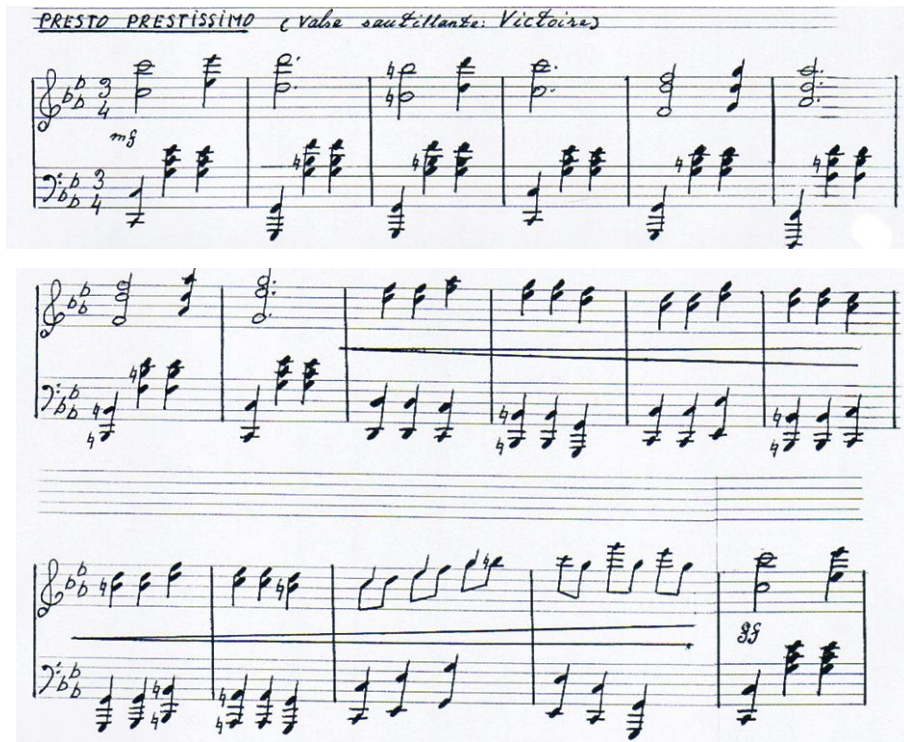 PRESTO PRESTISSIMO (Valse sautillante: Victoire)
3
4
mf
3
4
ff